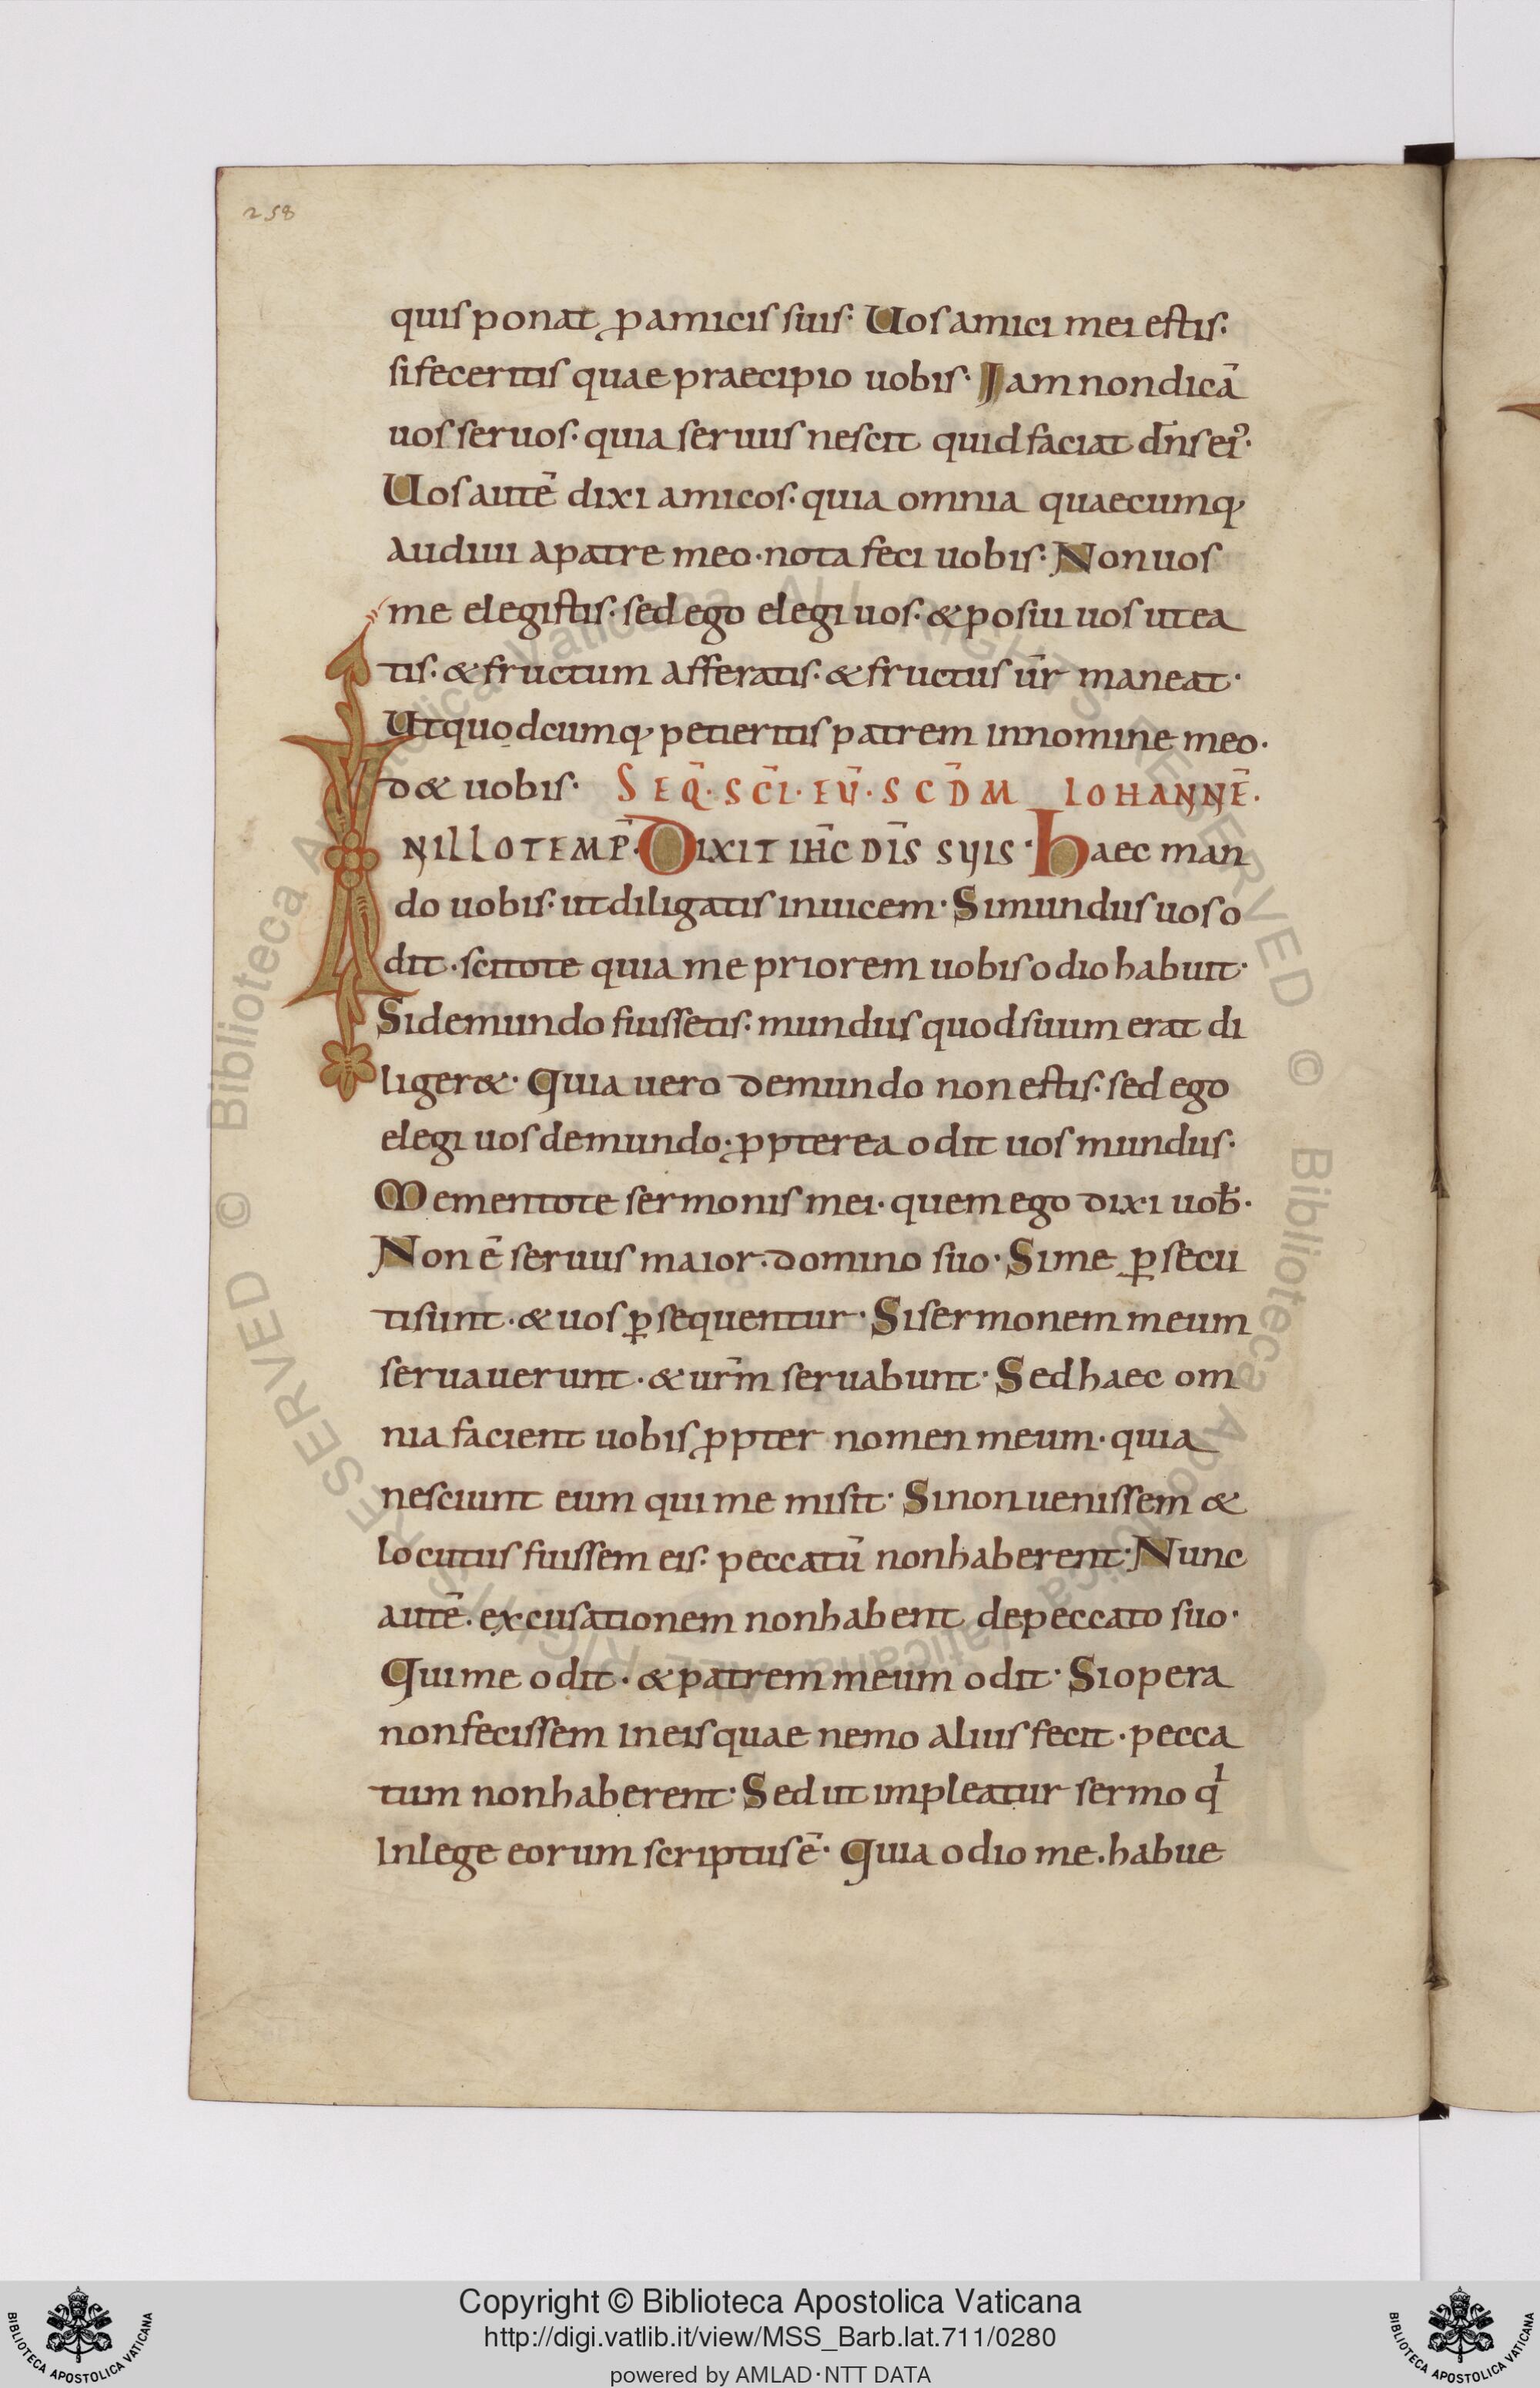 258
quis ponat ꝓ amicis suis· Uos amici mei estis·
si feceritis quae praecipio uobis· Iam non dicā
uos seruos· quia seruus nescit quid faciat dn̄s ei᾽·
Uos autē dixi amicos· quia omnia quaecumq;
audiui a patre meo· nota feci uobis· Non uos
me elegistis· sed ego elegi uos· & posui uos ut ea
tis· & fructum afferatis· & fructus ūr maneat·
Ut quodcumq; petieritis patrem in nomine meo·
d& uobis· SEQ̄· SC̄I· EŪ· SCD̄M IOHANNĒ·
IN ILLO TEMP̄· DIXIT IH̄C DIS̄ SUIS· Haec man
do uobis· ut diligatis inuicem· Si mundus uos o
dit· scitote quia me priorem uobis odio habuit·
Si de mundo fuissetis· mundus quod suum erat di
liger&· Quia uero de mundo non estis· sed ego
elegi uos de mundo· ꝓpterea odit uos mundus·
Mementote sermonis mei· quem ego dixi uob̄·
Non ē seruus maior· domino suo· Si me ꝑsecu
ti sunt· & uos ꝑsequentur· Si sermonem meum
seruauerunt· & ur̄m seruabunt· Sed haec om
nia facient uobis ꝓpter nomen meum· quia
nesciunt eum qui me misit· Si non uenissem &
locutus fuissem eis· peccatū non haberent· Nunc
autē· excusationem non habent de peccato suo·
Qui me odit· & patrem meum odit· Si opera
non fecissem in eis quae nemo alius fecit· pecca
tum non haberent· Sed ut impleatur sermo qⁱ
In lege eorum scriptus ē· Quia odio me· habue
© Biblioteca Apostolica Vaticana ALL RIGHTS RESERVED © Biblioteca Apostolica Vaticana ALL RIGHTS RESERVED
Copyright © Biblioteca Apostolica Vaticana
http://digi.vatlib.it/view/MSS_Barb.lat.711/0280
powered by AMLAD·NTT DATA
BIBLIOTECA APOSTOLICA VATICANA
BIBLIOTECA APOSTOLICA VATICANA